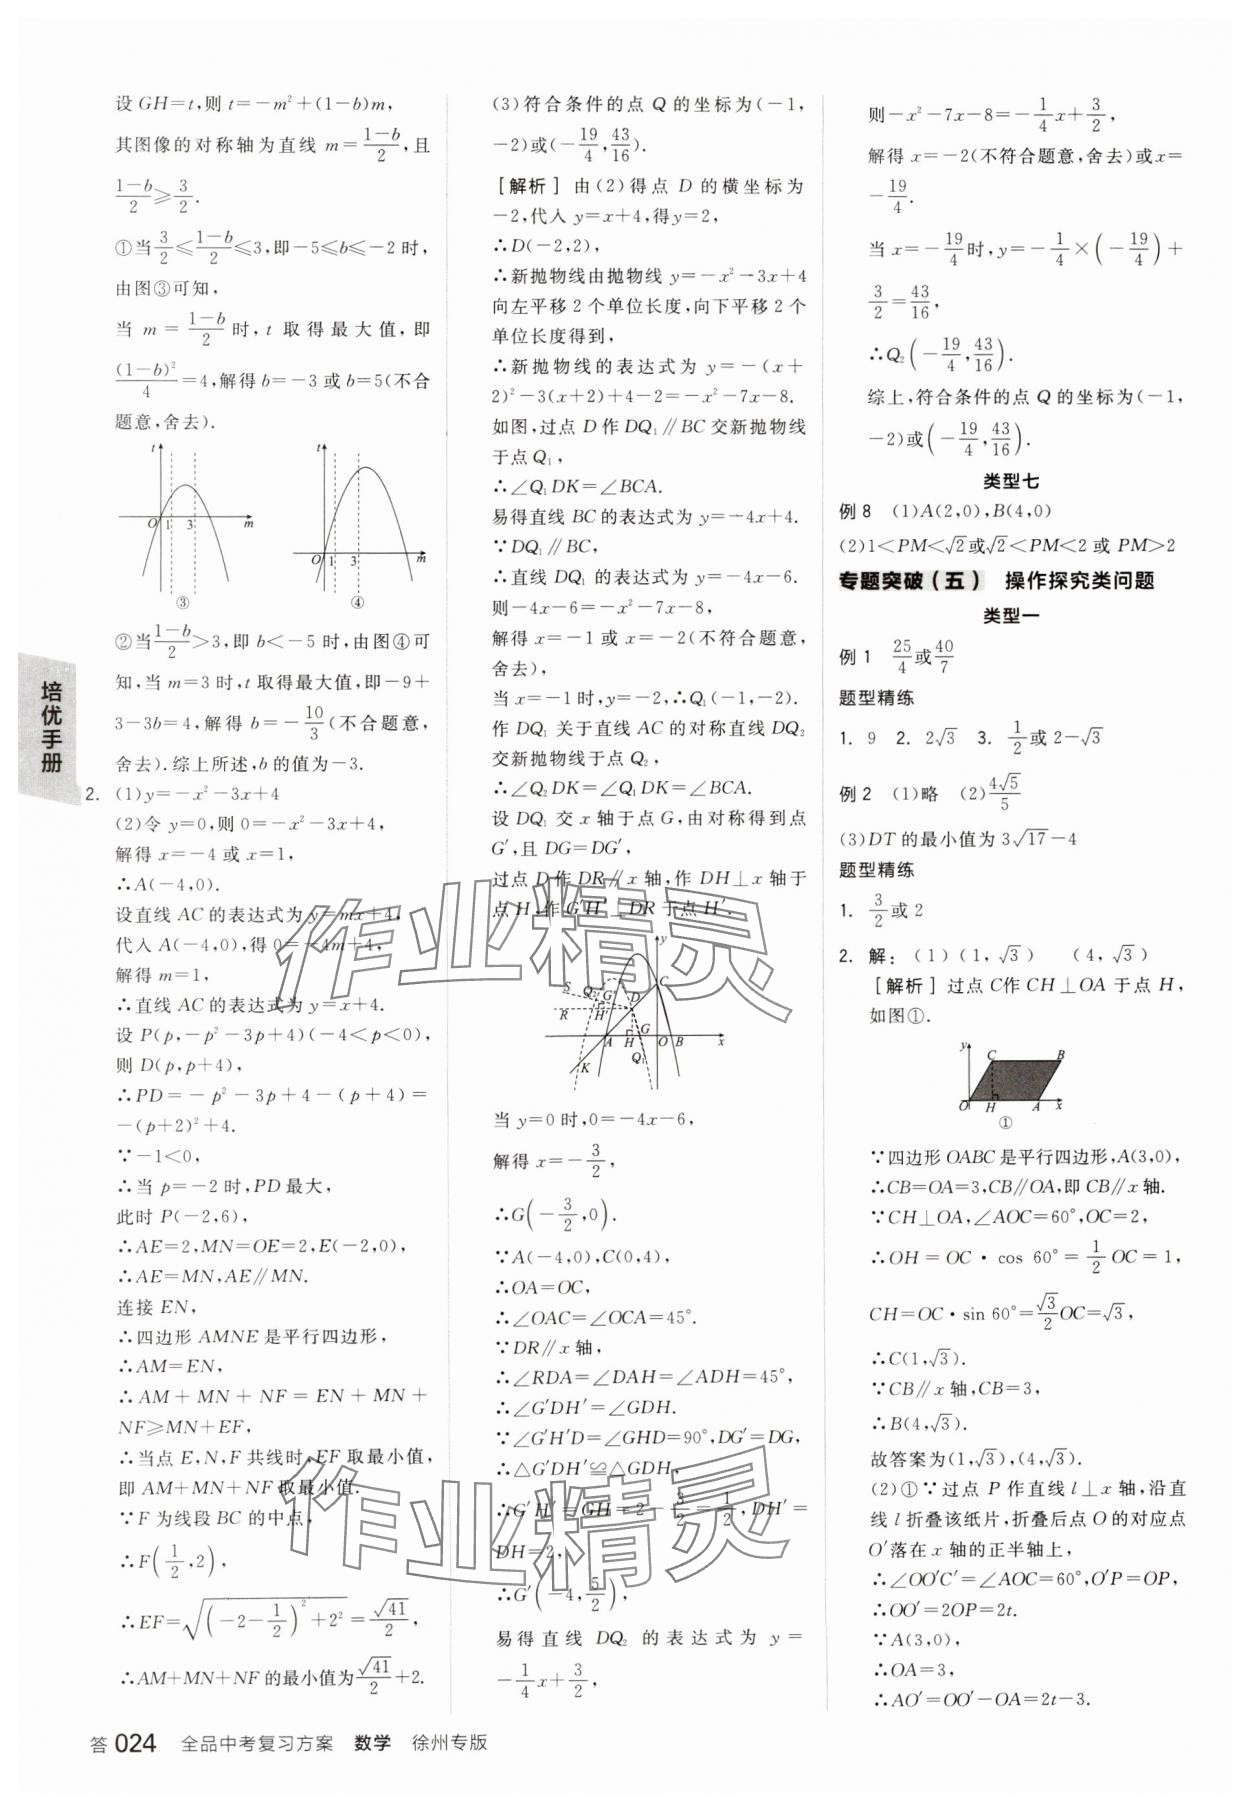 设 GH=t,则 t=-m²+(1-b)m,
其图像的对称轴为直线 m=\frac{1-b}{2},且
\frac{1-b}{2}≥\frac{3}{2}.
①当\frac{3}{2}≤\frac{1-b}{2}≤3,即-5≤b≤-2 时,
由图③可知,
当 m=\frac{1-b}{2}时,t 取得最大值,即
\frac{(1-b)²}{4}=4,解得b=-3 或b=5(不合
题意,舍去).
t
O 1 3 m
③
t
O 1 3 m
④
②当\frac{1-b}{2}>3,即 b<-5 时,由图④可
知,当 m=3 时,t 取得最大值,即-9+
3-3b=4,解得 b=-\frac{10}{3}(不合题意,
舍去).综上所述,b 的值为-3.
2. (1)y=-x²-3x+4
(2)令 y=0,则 0=-x²-3x+4,
解得 x=-4 或 x=1,
∴A(-4,0).
设直线 AC 的表达式为 y=mx+4,
代入 A(-4,0),得 0=-4m+4,
解得 m=1,
∴直线 AC 的表达式为 y=x+4.
设 P(p,-p²-3p+4)(-4<p<0),
则 D(p,p+4),
∴PD=-p²-3p+4-(p+4)=
-(p+2)²+4.
∵-1<0,
∴当 p=-2 时,PD 最大,
此时 P(-2,6),
∴AE=2,MN=OE=2,E(-2,0),
∴AE=MN,AE∥MN.
连接 EN,
∴四边形 AMNE 是平行四边形,
∴AM=EN,
∴AM+MN+NF=EN+MN+
NF≥MN+EF,
∴当点 E,N,F 共线时,EF 取最小值,
即 AM+MN+NF 取最小值.
∵F 为线段 BC 的中点,
∴F(\frac{1}{2},2),
∴EF=\sqrt{(-2-\frac{1}{2})²+2²}=\frac{\sqrt{41}}{2},
∴AM+MN+NF 的最小值为\frac{\sqrt{41}}{2}+2.
(3)符合条件的点 Q 的坐标为(-1,
-2)或(-\frac{19}{4},\frac{43}{16}).
[解析] 由(2)得点 D 的横坐标为
-2,代入 y=x+4,得y=2,
∴D(-2,2),
∴新抛物线由抛物线 y=-x²-3x+4
向左平移 2 个单位长度,向下平移 2 个
单位长度得到,
∴新抛物线的表达式为 y=-(x+
2)²-3(x+2)+4-2=-x²-7x-8.
如图,过点 D 作 DQ₁∥BC 交新抛物线
于点 Q₁,
∴∠Q₁DK=∠BCA.
易得直线 BC 的表达式为 y=-4x+4.
∵DQ₁∥BC,
∴直线 DQ₁ 的表达式为 y=-4x-6.
则-4x-6=-x²-7x-8,
解得 x=-1 或 x=-2(不符合题意,
舍去),
当 x=-1 时,y=-2,∴Q₁(-1,-2).
作 DQ₁ 关于直线 AC 的对称直线 DQ₂
交新抛物线于点 Q₂,
∴∠Q₂DK=∠Q₁DK=∠BCA.
设 DQ₁ 交 x 轴于点 G,由对称得到点
G′,且 DG=DG′,
过点 D 作 DR∥x 轴,作 DH⊥x 轴于
点 H,作 G′H′⊥DR 于点 H′.
y
C
S Q₂ G′ D
R H′
A H G O B x
K Q₁
当 y=0 时,0=-4x-6,
解得 x=-\frac{3}{2},
∴G(-\frac{3}{2},0).
∵A(-4,0),C(0,4),
∴OA=OC,
∴∠OAC=∠OCA=45°.
∵DR∥x 轴,
∴∠RDA=∠DAH=∠ADH=45°,
∴∠G′DH′=∠GDH.
∵∠G′H′D=∠GHD=90°,DG′=DG,
∴△G′DH′≌△GDH,
∴G′H′=GH=2-\frac{3}{2}=\frac{1}{2},DH′=
DH=2,
∴G′(-4,\frac{5}{2}),
易得直线 DQ₂ 的表达式为 y=
-\frac{1}{4}x+\frac{3}{2},
则-x²-7x-8=-\frac{1}{4}x+\frac{3}{2},
解得 x=-2(不符合题意,舍去)或x=
-\frac{19}{4}.
当 x=-\frac{19}{4}时,y=-\frac{1}{4}×(-\frac{19}{4})+
\frac{3}{2}=\frac{43}{16},
∴Q₂(-\frac{19}{4},\frac{43}{16}).
综上,符合条件的点 Q 的坐标为(-1,
-2)或(-\frac{19}{4},\frac{43}{16}).
类型七
例 8 (1)A(2,0),B(4,0)
(2)1<PM<√2或√2<PM<2 或 PM>2
专题突破(五) 操作探究类问题
类型一
例 1 \frac{25}{4}或\frac{40}{7}
题型精练
1. 9 2. 2√3 3. \frac{1}{2}或 2-√3
例 2 (1)略 (2)\frac{4√5}{5}
(3)DT 的最小值为 3√17-4
题型精练
1. \frac{3}{2}或 2
2. 解:(1)(1,√3) (4,√3)
[解析] 过点 C作 CH⊥OA 于点 H,
如图①.
y
C B
O H A x
①
∵四边形 OABC 是平行四边形,A(3,0),
∴CB=OA=3,CB∥OA,即 CB∥x 轴.
∵CH⊥OA,∠AOC=60°,OC=2,
∴OH=OC·cos 60°=\frac{1}{2}OC=1,
CH=OC·sin 60°=\frac{√3}{2}OC=√3,
∴C(1,√3).
∵CB∥x 轴,CB=3,
∴B(4,√3).
故答案为(1,√3),(4,√3).
(2)①∵过点 P 作直线 l⊥x 轴,沿直
线 l 折叠该纸片,折叠后点 O 的对应点
O′落在 x 轴的正半轴上,
∴∠OO′C′=∠AOC=60°,O′P=OP,
∴OO′=2OP=2t.
∵A(3,0),
∴OA=3,
∴AO′=OO′-OA=2t-3.
培优手册
作业精灵
作业精灵
答 024 全品中考复习方案 数学 徐州专版